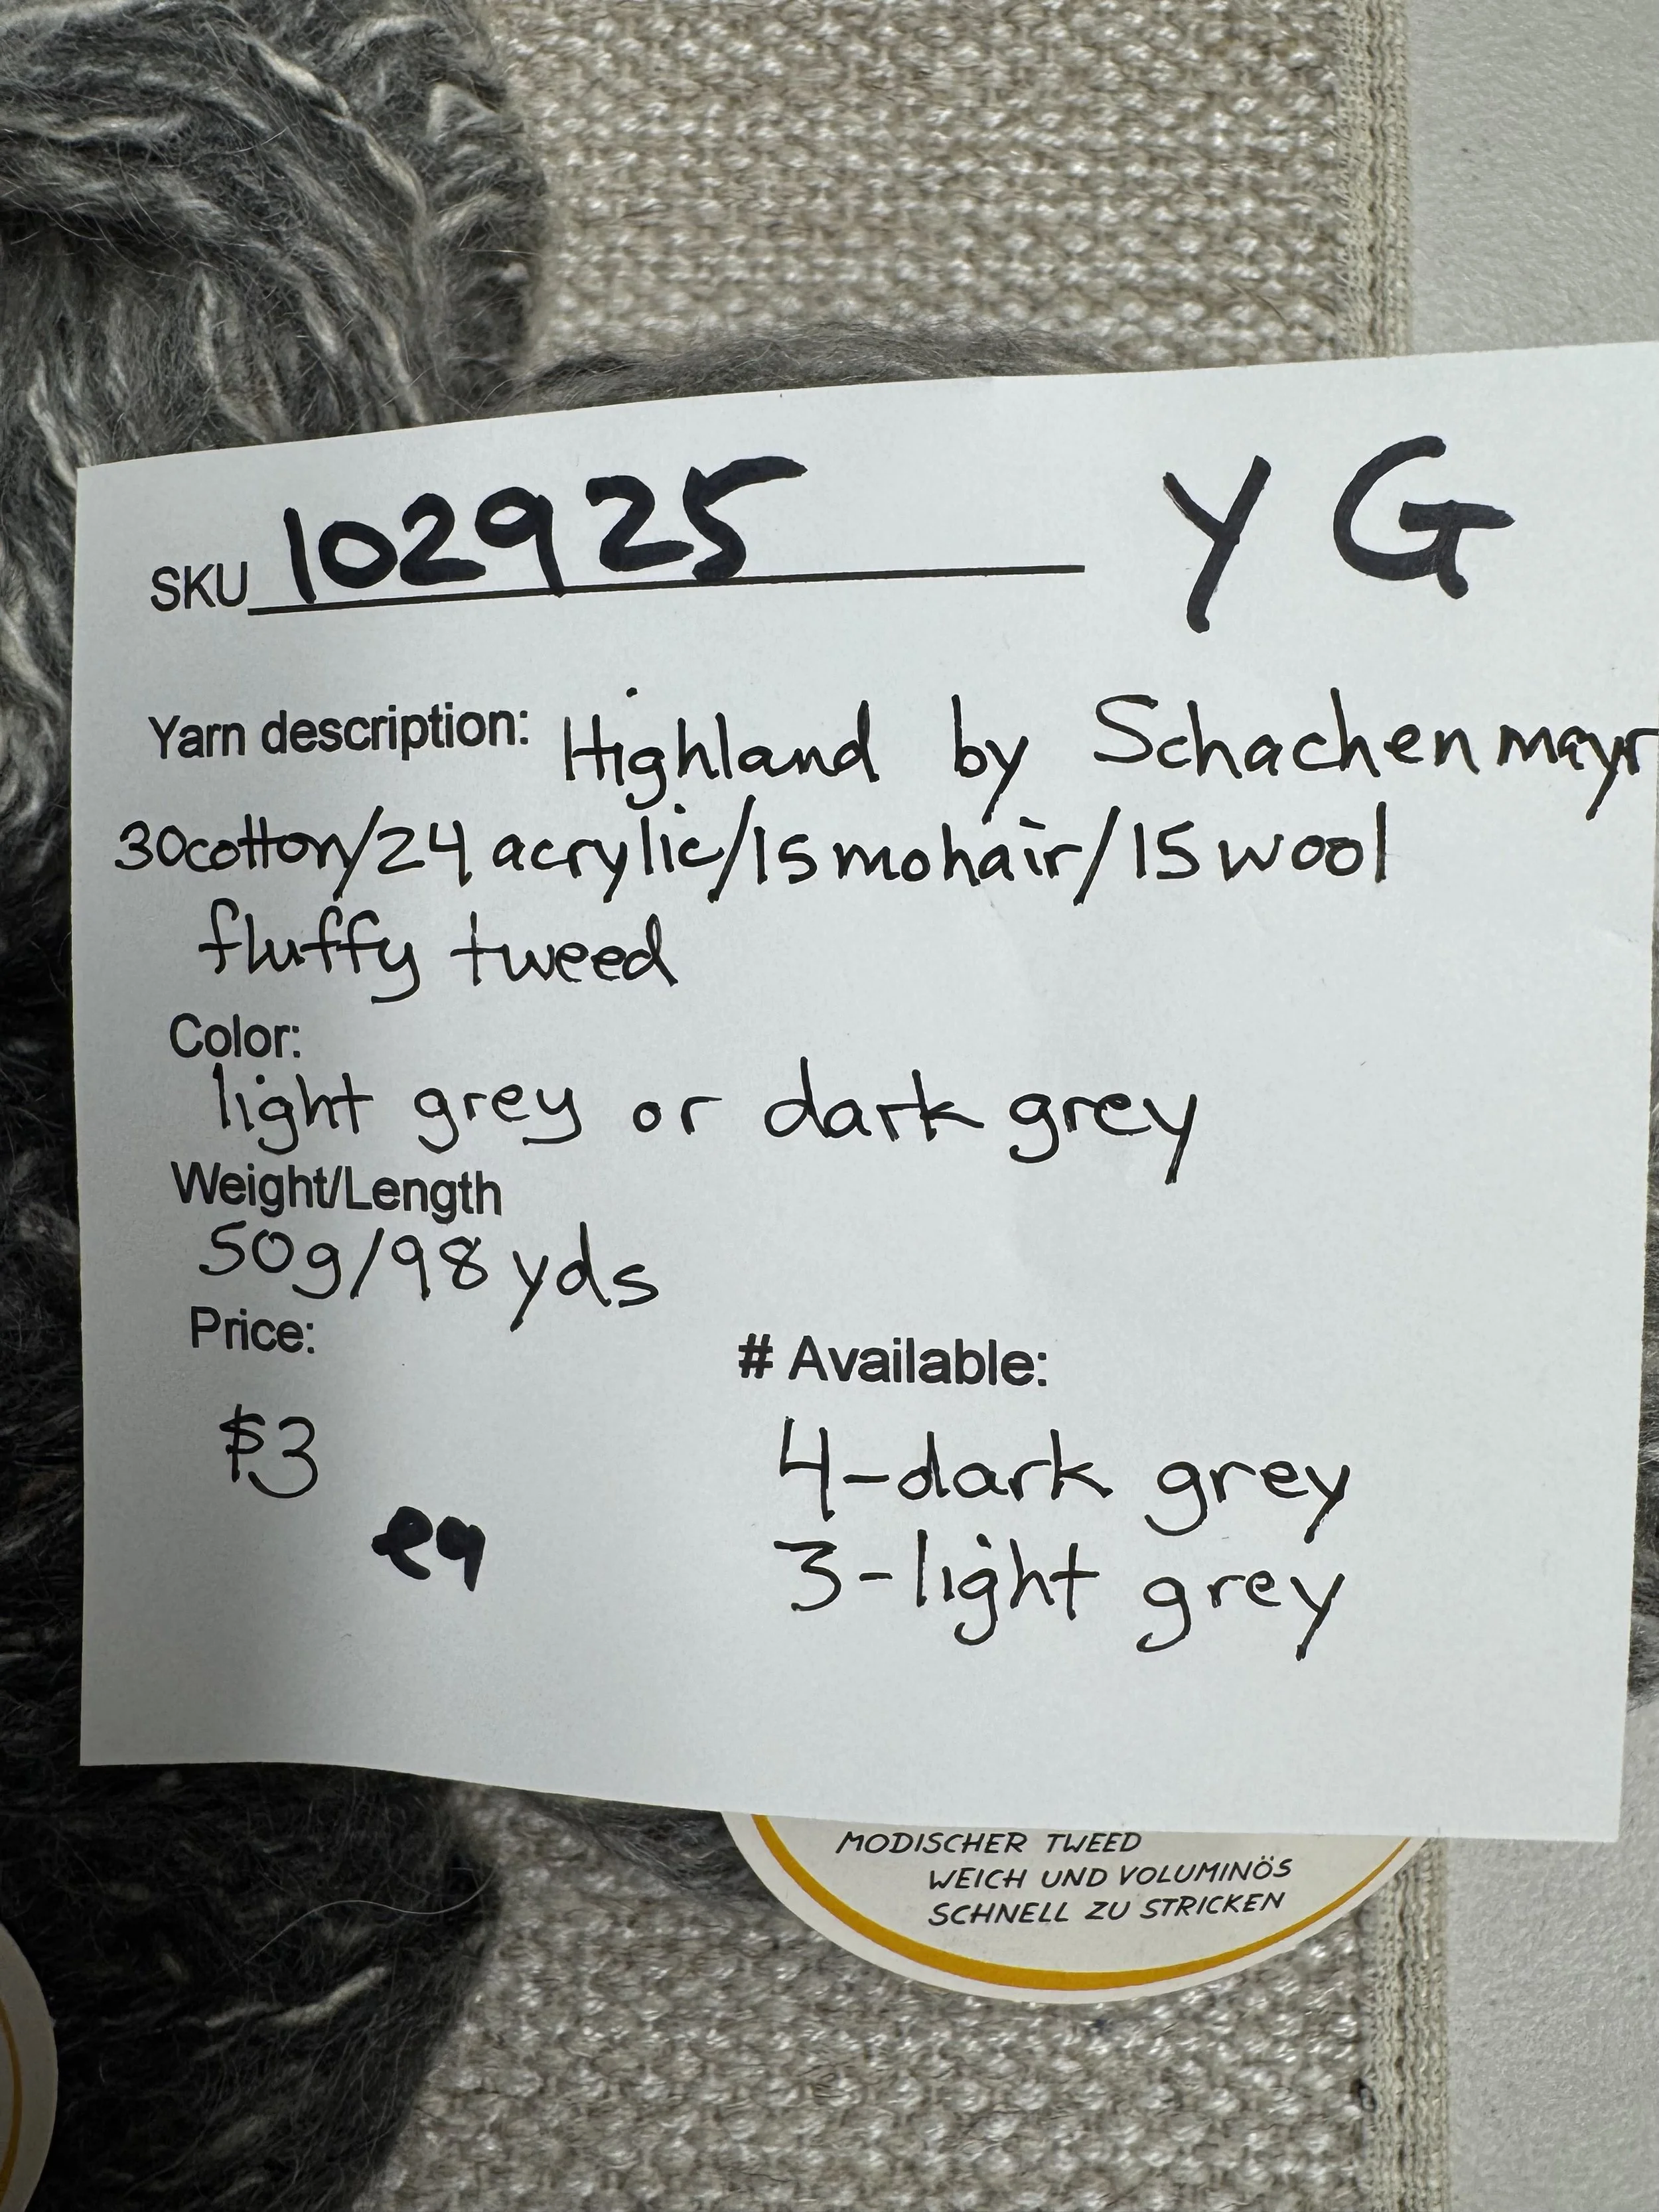 SKU 102925 YG
Yarn description: Highland by Schachenmayr
30cotton/24 acrylic/15mohair/15wool
fluffy tweed
Color:
light grey or dark grey
Weight/Length
50g/98yds
Price:
# Available:
$3
ea
4-dark grey
3-light grey
MODISCHER TWEED
WEICH UND VOLUMINÖS
SCHNELL ZU STRICKEN